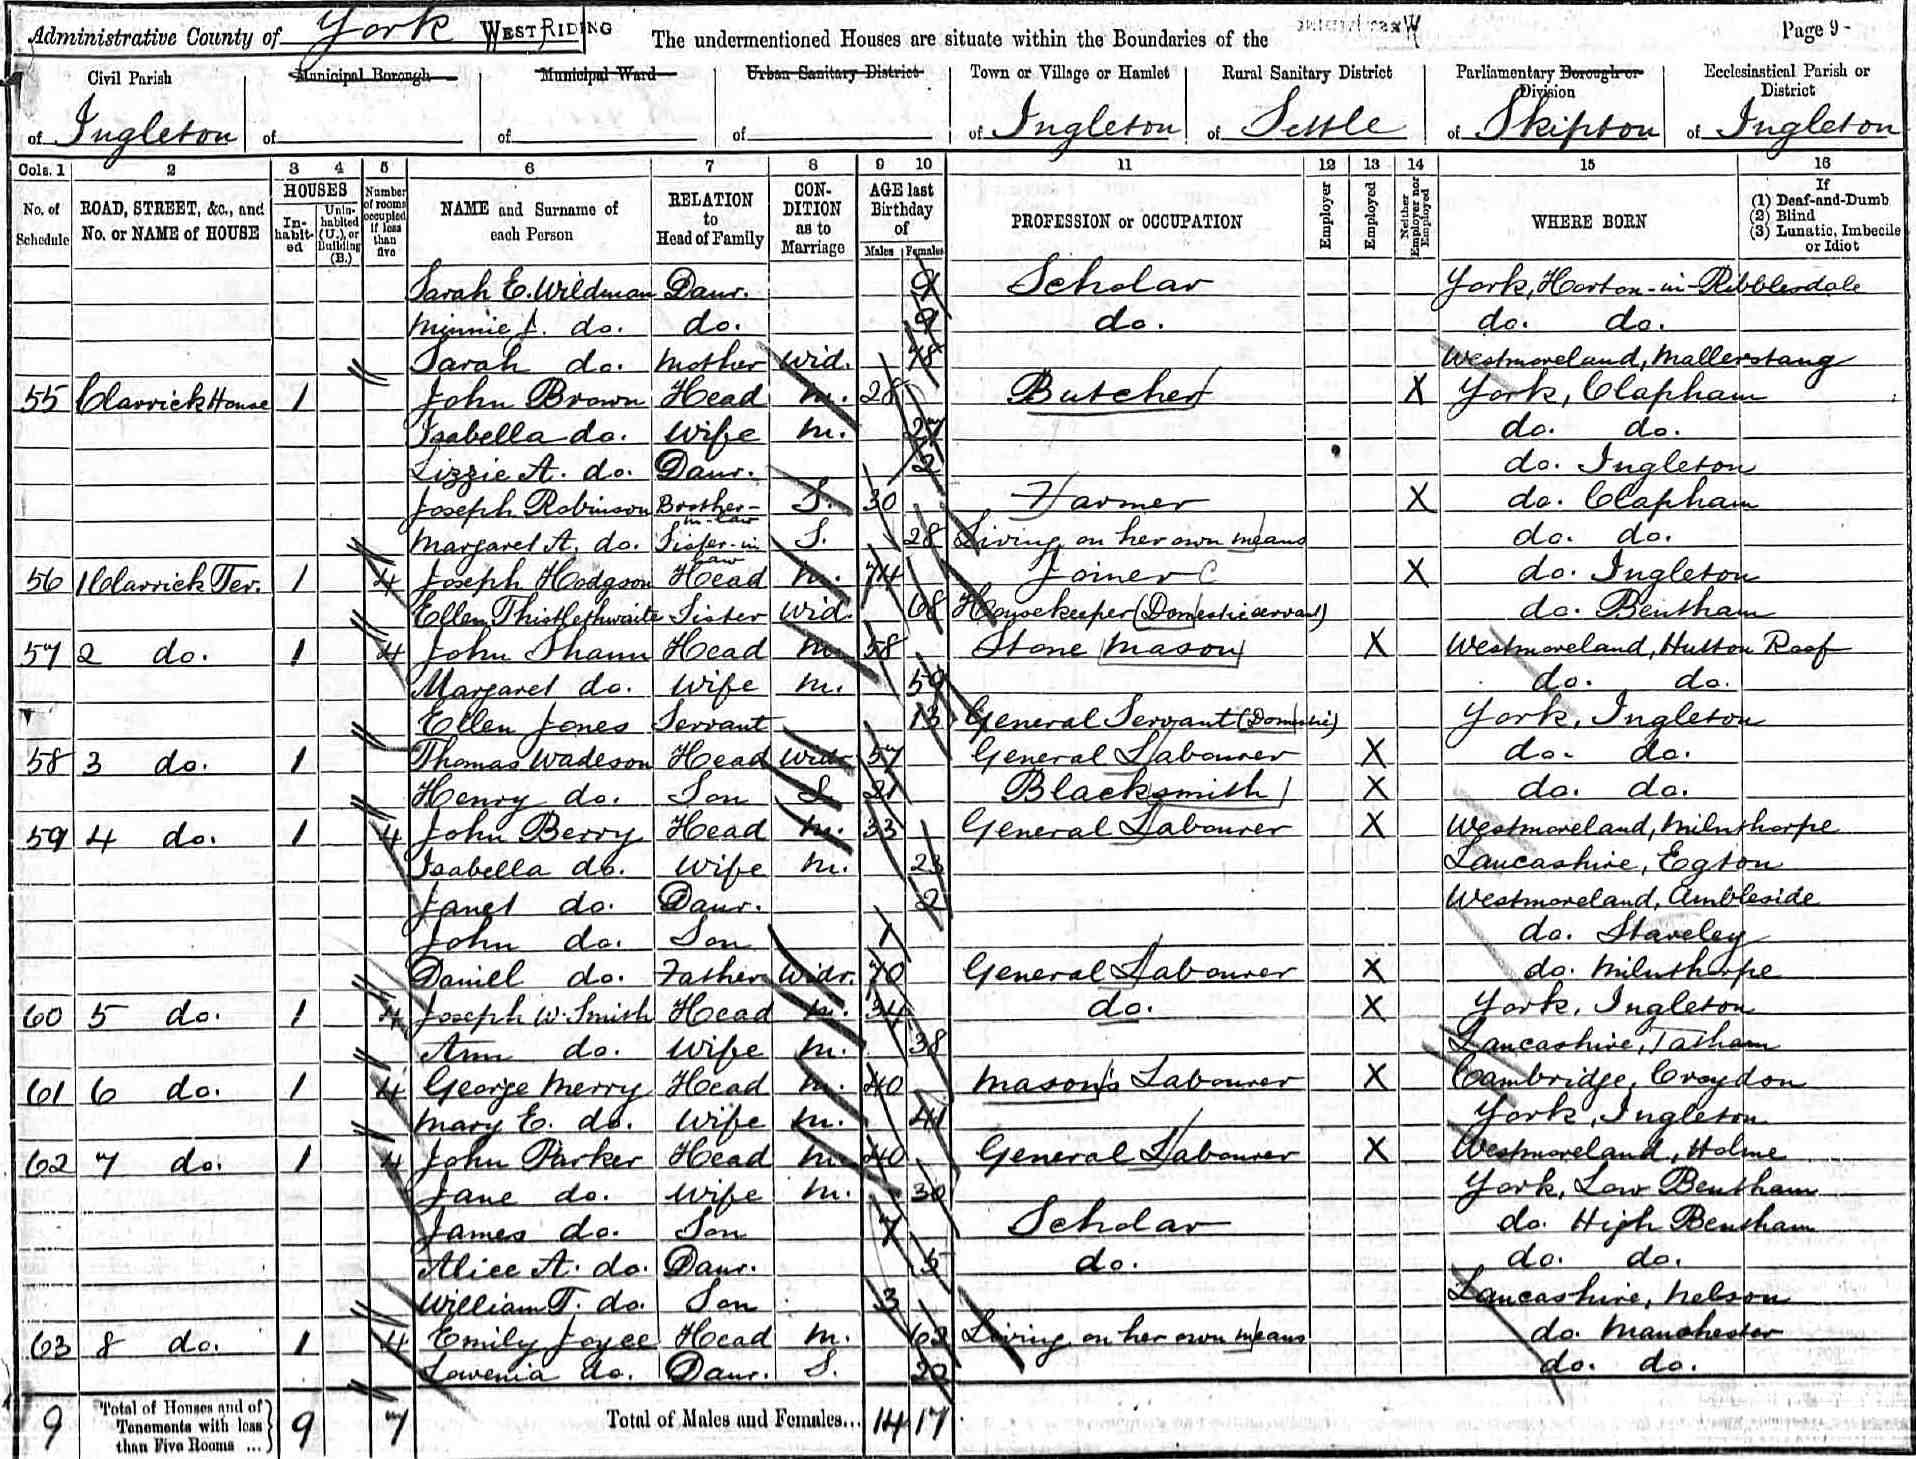 Administrative County of York WEST RIDING The undermentioned Houses are situate within the Boundaries of the Page 9-
Civil Parish Municipal Borough Municipal Ward Urban Sanitary District Town or Village or Hamlet Rural Sanitary District Parliamentary Borough or Division Ecclesiastical Parish or District
of Ingleton of of of of Ingleton of Settle of Skipton of Ingleton
Cols. 1 2 3 4 5 6 7 8 9 10 11 12 13 14 15 16
No. of Schedule ROAD, STREET, &c., and No. or NAME of HOUSE HOUSES Inhabited Uninhabited (U.), or Building (B.) Number of rooms occupied if less than five NAME and Surname of each Person RELATION to Head of Family CONDITION as to Marriage AGE last Birthday of Males Females PROFESSION or OCCUPATION Employer Employed Neither Employer nor Employed WHERE BORN If (1) Deaf-and-Dumb (2) Blind (3) Lunatic, Imbecile or Idiot
Sarah E. Wildman Daur. 9 Scholar York, Horton-in-Ribblesdale
Minnie J. do. do. 9 do. do. do.
Sarah do. Mother Wid. 78 Westmoreland, Mallerstang
55 Clarrick House 1 John Brown Head M. 28 Butcher X York, Clapham
Isabella do. Wife M. 27 do. do.
Lizzie A. do. Daur. 2 do. Ingleton
Joseph Robinson Brother-in-law S. 30 Farmer X do. Clapham
Margaret A. do. Sister-in-law S. 28 Living on her own means do. do.
56 1 Clarrick Ter. 1 4 Joseph Hodgson Head M. 74 Joiner X do. Ingleton
Ellen Thistlethwaite Sister Wid. 68 Housekeeper (Domestic servant) do. Bentham
57 2 do. 1 4 John Shann Head M 58 Stone Mason X Westmoreland, Hutton Roof
Margaret do. Wife M. 59 do. do.
Ellen Jones Servant 13 General Servant (Domestic) York, Ingleton
58 3 do. 1 Thomas Wadeson Head Widr. 57 General Labourer X do. do.
Henry do. Son S 21 Blacksmith X do. do.
59 4 do. 1 4 John Berry Head M. 33 General Labourer X Westmoreland, Milnthorpe
Isabella do. Wife M. 23 Lancashire, Egton
Janet do. Daur. 2 Westmoreland, Ambleside
John do. Son 1 do. Staveley
Daniel do. Father Widr. 70 General Labourer X do. Milnthorpe
60 5 do. 1 4 Joseph W. Smith Head M. 34 do. X York, Ingleton
Ann do. Wife M. 38 Lancashire, Tatham
61 6 do. 1 4 George Merry Head M. 40 Mason's Labourer X Cambridge, Croydon
Mary E. do. Wife M. 41 York, Ingleton
62 7 do. 1 4 John Parker Head M. 40 General Labourer X Westmoreland, Holme
Jane do. Wife M. 30 York, Low Bentham
James do. Son 7 Scholar do. High Bentham
Alice A. do. Daur. 5 do. do. do.
William T. do. Son 3 Lancashire, Nelson
63 8 do. 1 4 Emily Joyce Head M. 62 Living on her own means do. Manchester
Lavenia do. Daur. S. 20 do. do.
9 Total of Houses and of Tenements with less than Five Rooms ... 9 7 Total of Males and Females... 14 17